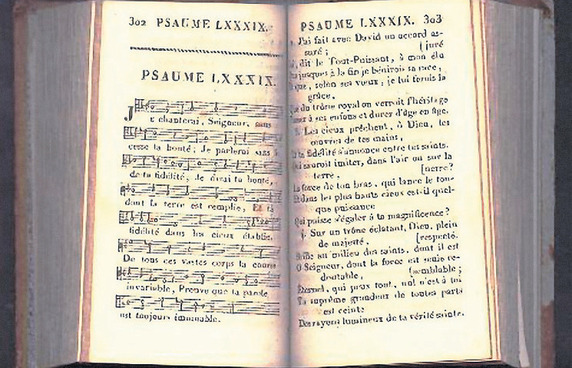 302 PSAUME LXXXIX.
PSAUME LXXXIX.
Je chanterai, Seigneur, sans
cesse ta bonté; Je parlerai sans
de ta fidélité; Je dirai ta bonté,
dont la terre est remplie, Et ta
fidélité dans les cieux établie,
De tous ces vastes corps la course
invariable, Preuve que ta parole
est toujours immuable.
PSAUME LXXXIX. 303
J'ai fait avec David un accord as-
suré; [juré
dit le Tout-Puissant, à mon élu
jusques à la fin je bénirois sa race,
que, selon ses vœux, je lui ferois la
grâce,
du trône royal on verroit l'héritage
à ses enfans et durer d'âge en âge.
Les cieux prêchent, ô Dieu, les
œuvres de tes mains,
ta fidélité s'annonce entre tes saints.
sauroit imiter, dans l'air ou sur la
terre, [nerre?
La force de ton bras, qui lance le ton-
dans les plus hauts cieux est-il quel-
que puissance
Qui puisse s'égaler à ta magnificence?
Sur un trône éclatant, Dieu, plein
de majesté, [respecté.
au milieu des saints, dont il est
O Seigneur, dont la force est seule re-
doutable, [semblable;
Eternel, qui peux tout, nul n'est à toi
Ta suprême grandeur de toutes parts
est ceinte
Des rayons lumineux de ta vérité sainte.